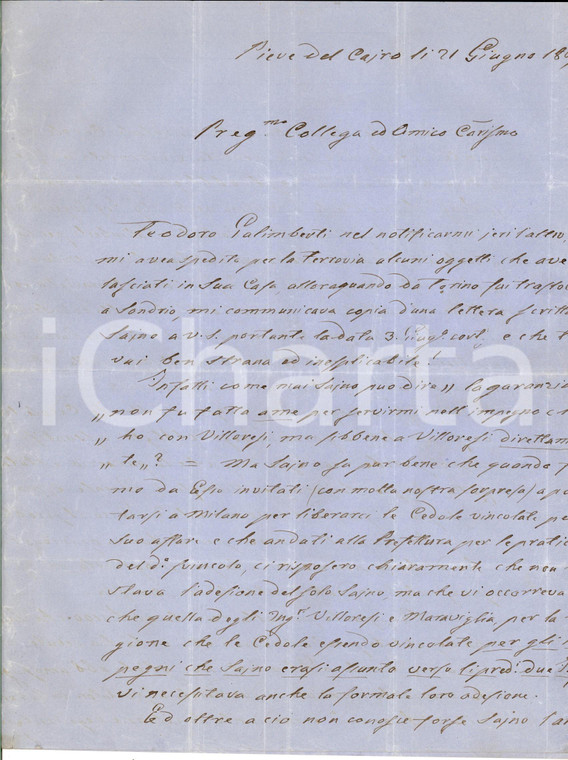 Pieve del Cajro li 21 Giugno 18
Preg.mo Collega ed Amico Carissmo
Teodoro Galimberti nel notificarmi jeri l'altro,
mi avea spedito per la ferrovia alcuni oggetti che ave
lasciati in Sua Casa, alloraquando da Torino fui trasfo
a Sondrio, mi comunicava copia d'una lettera scritta
Sajno a V.S. portante la data 3. e che t
vai ben strana ed inesplicabile!
Infatti come mai Sajno può dire „ la garanzia
„ non fu fatta a me per servirmi nell'impegno c
„ ho con Villoresi ma sibbene a Villoresi direttam
„ te „? = Ma Sajno sa pur bene che quando f
mo da Esso invitati (con molta nostra sorpresa) a po
tarsi a Milano per liberarci le Cedole vincolate pe
suo affare e che andati alla Prefettura per le prati
del d.o svincolo, ci risposero chiaramente che non
stava l'adesione del solo Sajno, ma che vi occorreva
che quella degli Ing.ri Villoresi e Maraviglia per la
gione che le Cedole essendo vincolate per gli
pegni che Sajno erasi assunto verso li pred.i due
vi necessitava anche la formale loro adesione.
Ed oltre a ciò non conosce forse Sajno l'an
iCharta